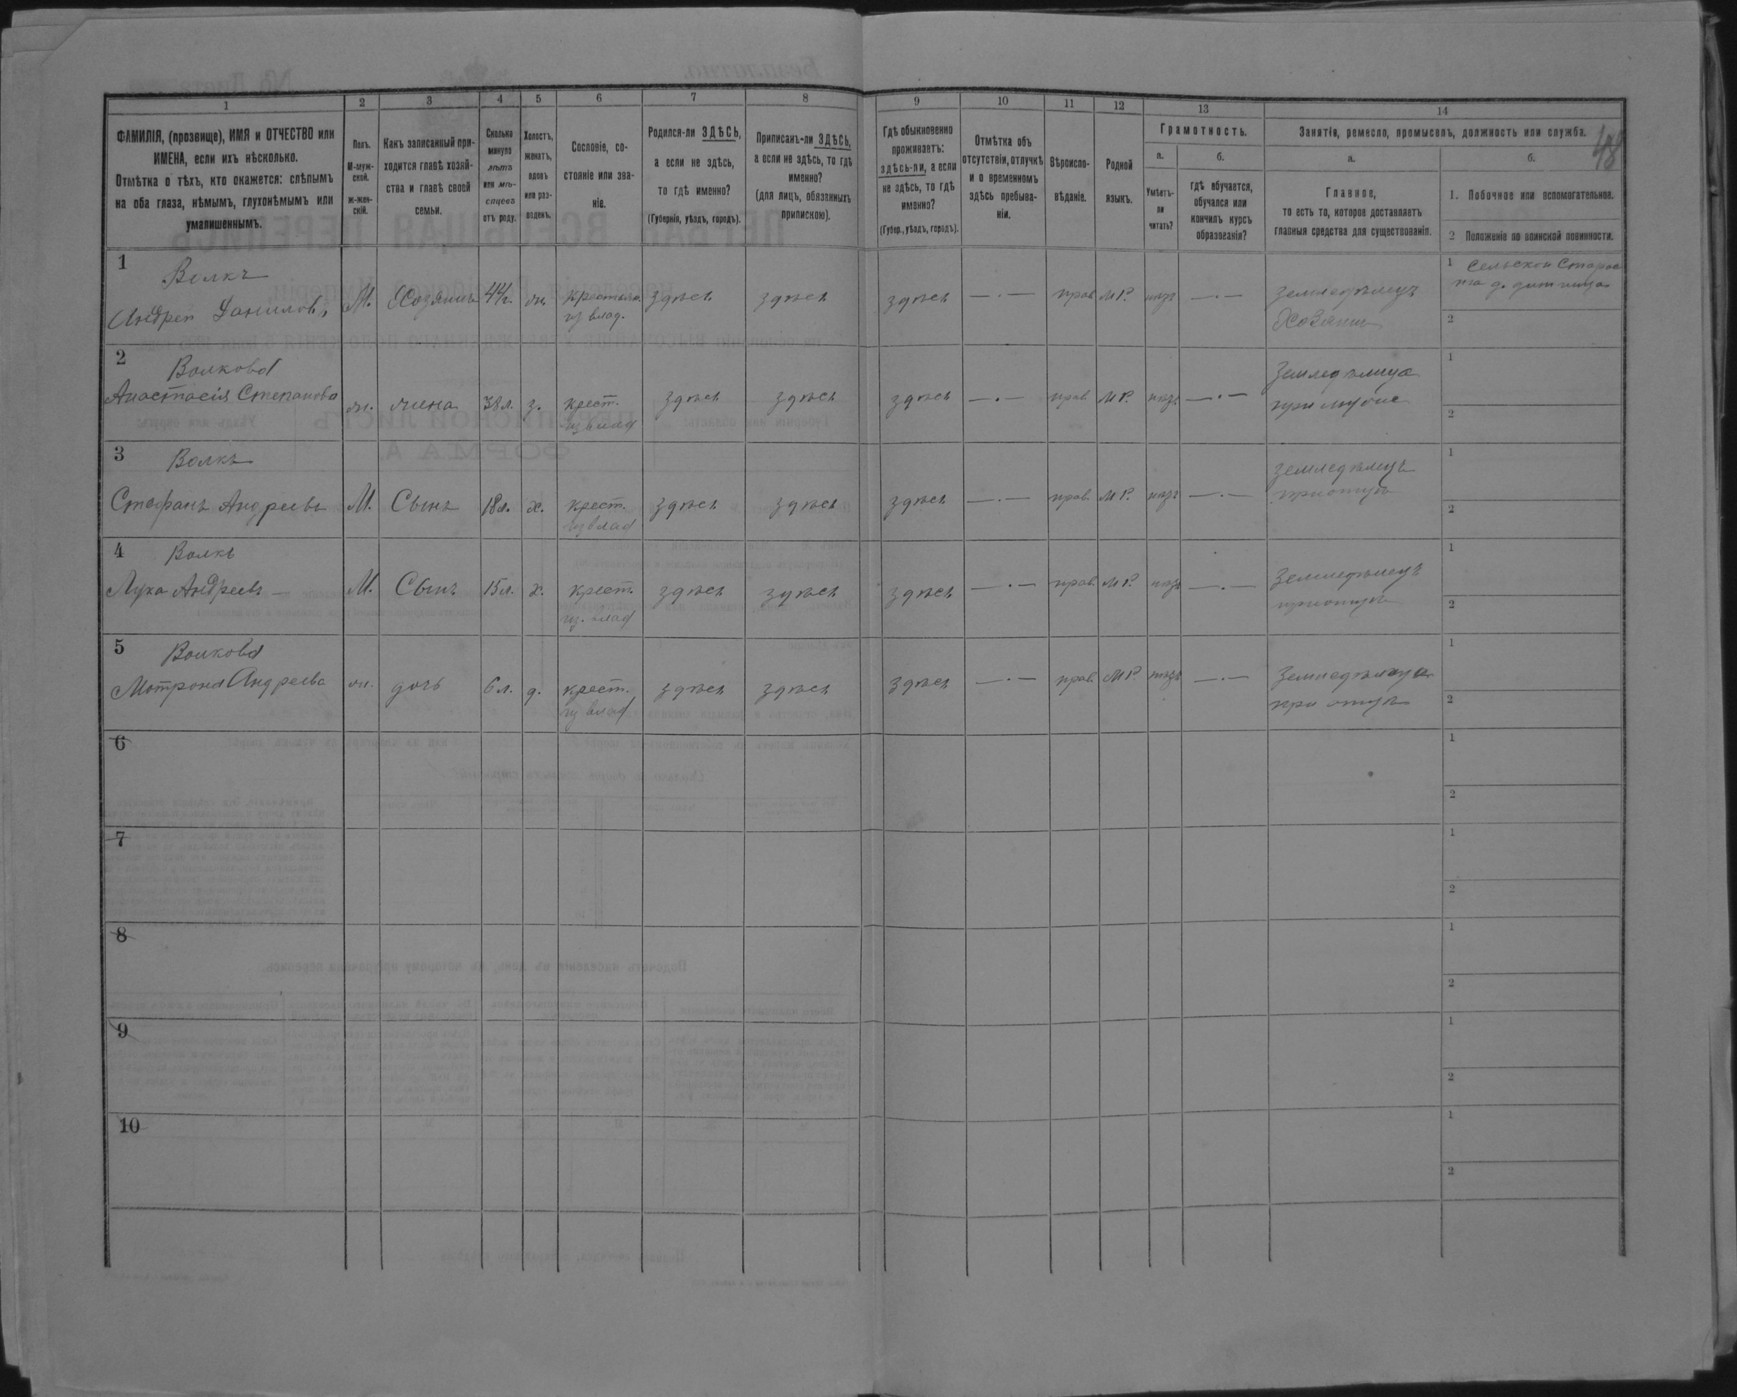 48
1 2 3 4 5 6 7 8 9 10 11 12 13 14
ФАМИЛІЯ, (прозвище), ИМЯ и ОТЧЕСТВО или
ИМЕНА, если ихъ нѣсколько.
Отмѣтка о тѣхъ, кто окажется: слѣпымъ
на оба глаза, нѣмымъ, глухонѣмымъ или
умалишеннымъ.
Полъ.
М-муж-
ской.
ж-жен-
скій.
Какъ записанный при-
ходится главѣ хозяй-
ства и главѣ своей
семьи.
Сколько
минуло
лѣтъ
или мѣ-
сяцевъ
отъ роду.
Холостъ,
женатъ,
вдовъ
или раз-
веденъ.
Сословіе, со-
стояніе или зва-
ніе.
Родился-ли ЗДѢСЬ,
а если не здѣсь,
то гдѣ именно?
(Губернія, уѣздъ, городъ).
Приписанъ-ли ЗДѢСЬ,
а если не здѣсь, то гдѣ
именно?
(для лицъ, обязанныхъ
припискою).
Гдѣ обыкновенно
проживаетъ:
здѣсь-ли, а если
не здѣсь, то гдѣ
именно?
(Губер., уѣздъ, городъ).
Отмѣтка объ
отсутствіи, отлучкѣ
и о временномъ
здѣсь пребыва-
ніи.
Вѣроиспо-
вѣданіе.
Родной
языкъ.
Грамотность.
а.
Умѣетъ-
ли
читать?
б.
гдѣ обучается,
обучался или
кончилъ курсъ
образованія?
Занятія, ремесло, промыселъ, должность или служба.
а.
Главное,
то есть то, которое доставляетъ
главныя средства для существованія.
б.
1. Побочное или вспомогательное.
2 Положеніе по воинской повинности.
1 Волкъ
Андрей Даниловъ М. Хозяинъ 44г. ж. крестьян. здѣсь здѣсь здѣсь —·— прав. МР. нѣтъ —·— Земледѣлецъ 1 Сельской Старос
из влад. Хозяинъ 2
2 Волкова
Анастасія Степанова ж. жена 38л. з. крест. здѣсь здѣсь здѣсь —·— прав МР. нѣтъ —·— Земледѣлица 1
из влад при мужѣ 2
3 Волкъ
Стефанъ Андреевъ М. Сынъ 18л. х. крест. здѣсь здѣсь здѣсь —·— прав. МР. нѣтъ —·— земледѣлецъ 1
из влад при отцѣ 2
4 Волкъ
Лука Андреевъ М. Сынъ 15л. х. крест. здѣсь здѣсь здѣсь —·— прав. МР. нѣтъ —·— Земледѣлецъ 1
из. влад при отцѣ 2
5 Волкова
Мотрона Андреева ж. дочь 6л. д. крест. здѣсь здѣсь здѣсь —·— прав. МР. нѣтъ —·— Земледѣлица 1
из влад при отцѣ 2
6 1
2
7 1
2
8 1
2
9 1
2
10 1
2